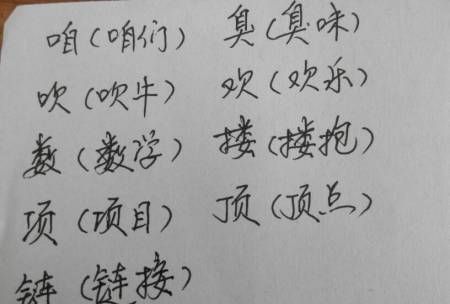 咱（咱们） 臭（臭味）
吹（吹牛） 欢（欢乐）
数（数学） 搂（搂抱）
项（项目） 顶（顶点）
链（链接）